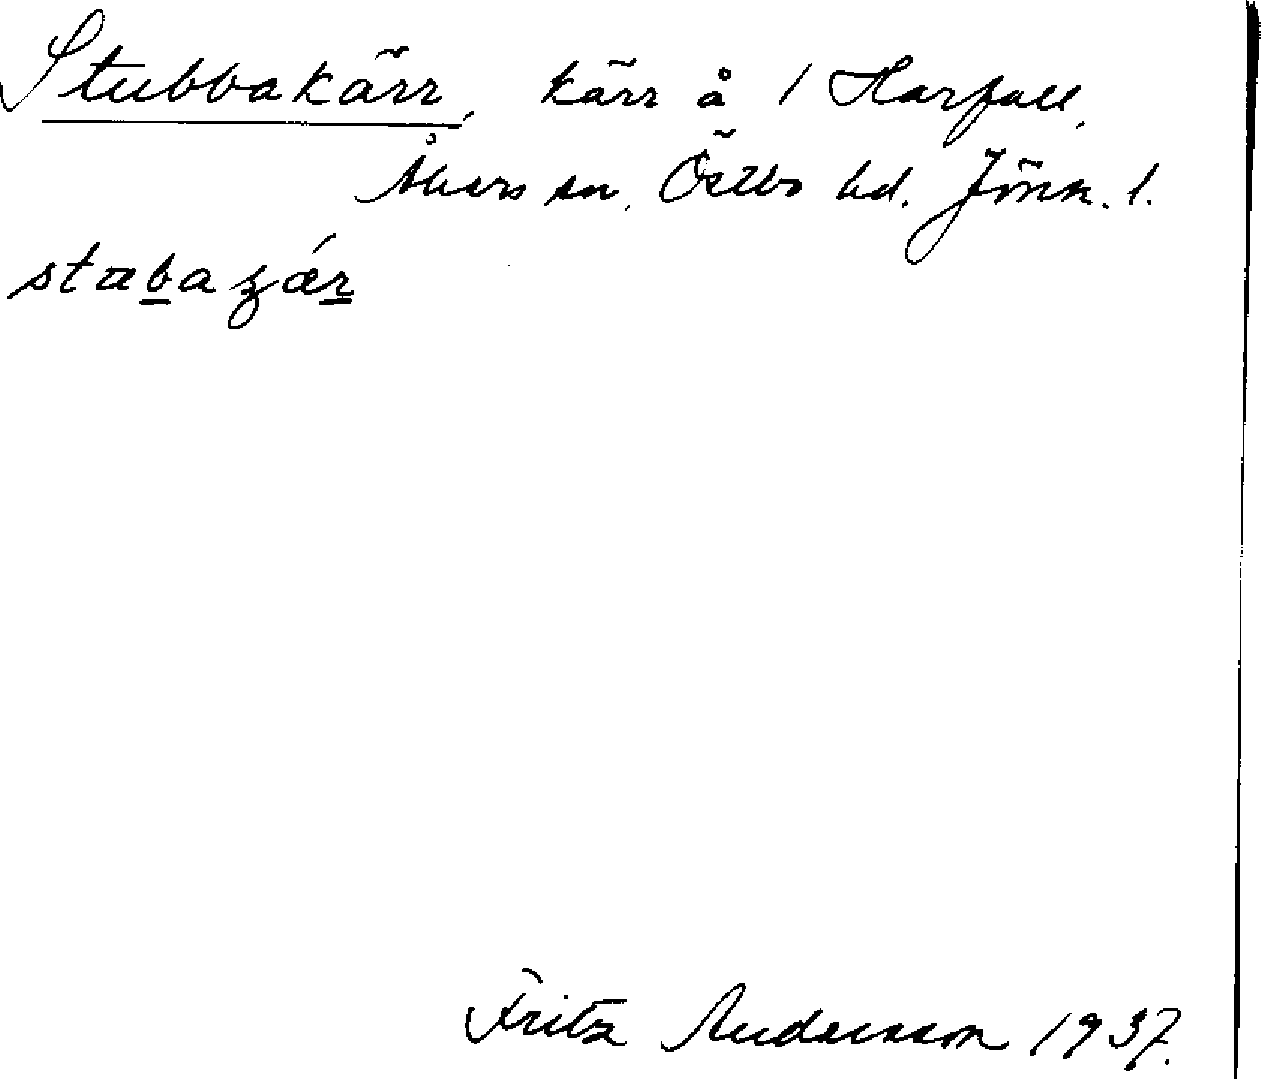 Stubbakärr, kärr å 1 Harfall,
Åkers sn, Östbo hd. Jönk. l.
stabaʒǽr
Fritz Andersson 1937.